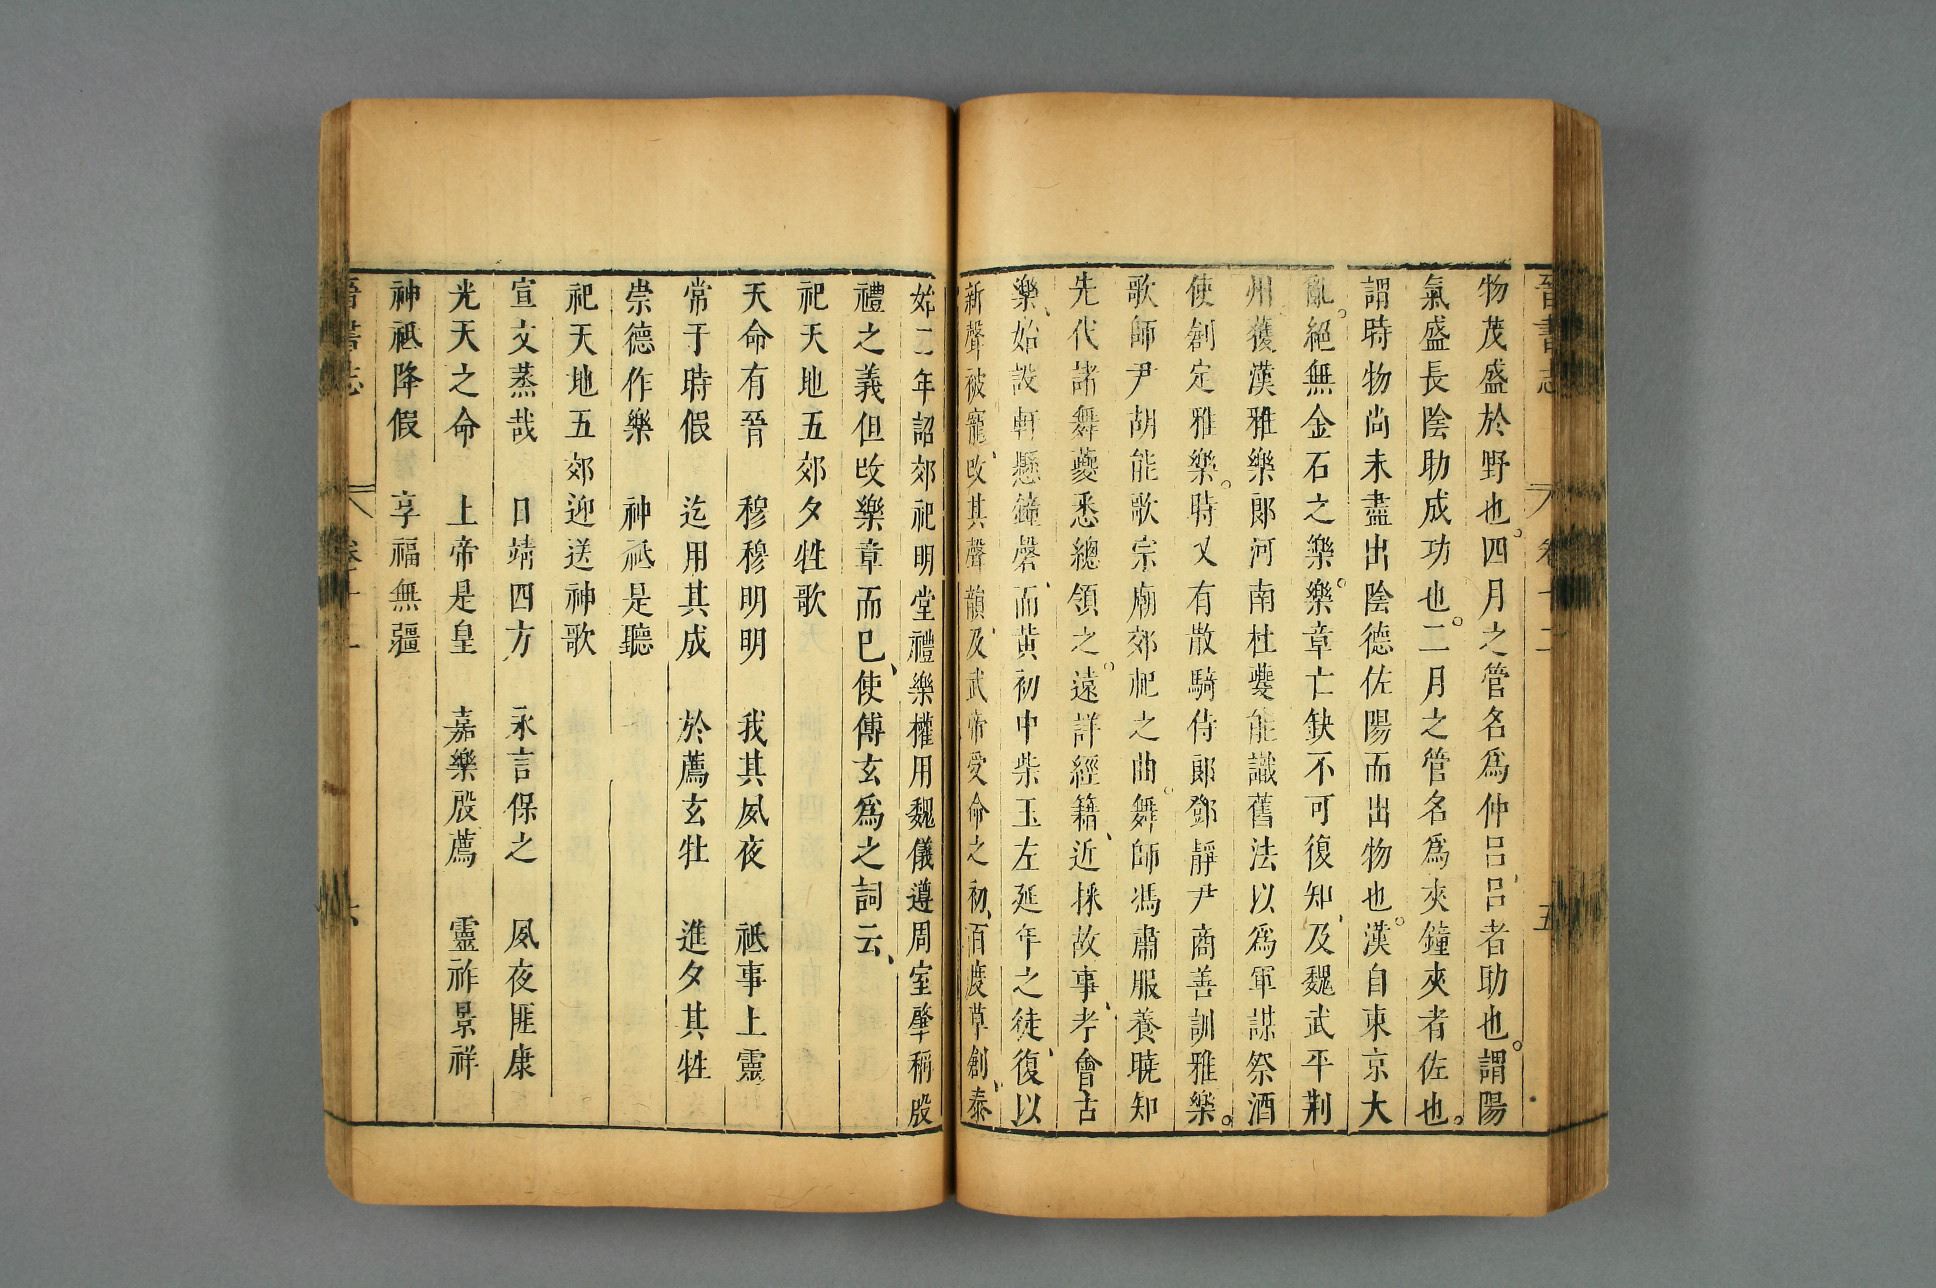 物茂盛於野也。四月之管名爲仲呂、呂者助也。謂陽
氣盛長陰助成功也。二月之管名爲夾鐘夾者佐也。
謂時物尚未盡出陰德佐陽而出物也。漢自東京大
亂。絕無金石之樂。樂章亡缺不可復知、及魏武平荆
州。獲漢雅樂郎河南杜夔能識舊法以爲軍謀祭酒
使創定雅樂。時又有散騎侍郎鄧靜尹商善訓雅樂。
歌師尹胡能歌宗廟郊祀之曲。舞師馮肅服養曉知
先代諸舞夔悉總領之。遠詳經籍、近採故事、考會古
樂、始設軒懸鐘磬、而黃初中柴玉左延年之徒、復以
新聲被寵、改其聲韻、及武帝受命之初、百度草創、泰
始二年詔郊祀明堂禮樂權用魏儀遵周室肇稱殷
禮之義但改樂章而已、使傅玄爲之詞云、
祀天地五郊夕牲歌
天命有晉 穆穆明明 我其夙夜 祗事上靈
常于時假 迄用其成 於薦玄牡 進夕其牲
崇德作樂 神祗是聽
祀天地五郊迎送神歌
宣文蒸哉 日靖四方 永言保之 夙夜匪康
光天之命 上帝是皇 嘉樂殷薦 靈祚景祥
神祗降假 享福無疆
晉書志 卷十二 五
晉書志 卷十二 六